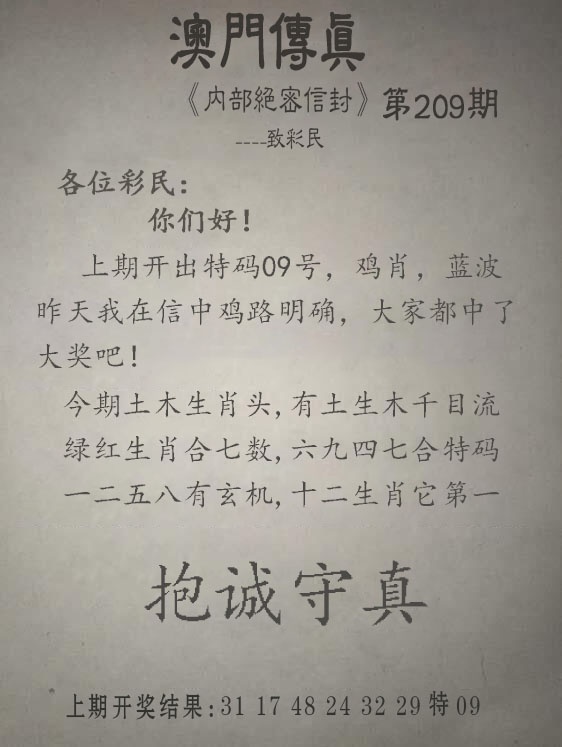 澳門傳眞
《内部絕密信封》第209期
----致彩民
各位彩民:
你们好!
上期开出特码09号, 鸡肖, 蓝波
昨天我在信中鸡路明确, 大家都中了
大奖吧!
今期土木生肖头,有土生木千目流
绿红生肖合七数,六九四七合特码
一二五八有玄机,十二生肖它第一
抱诚守真
上期开奖结果:31 17 48 24 32 29 特 09